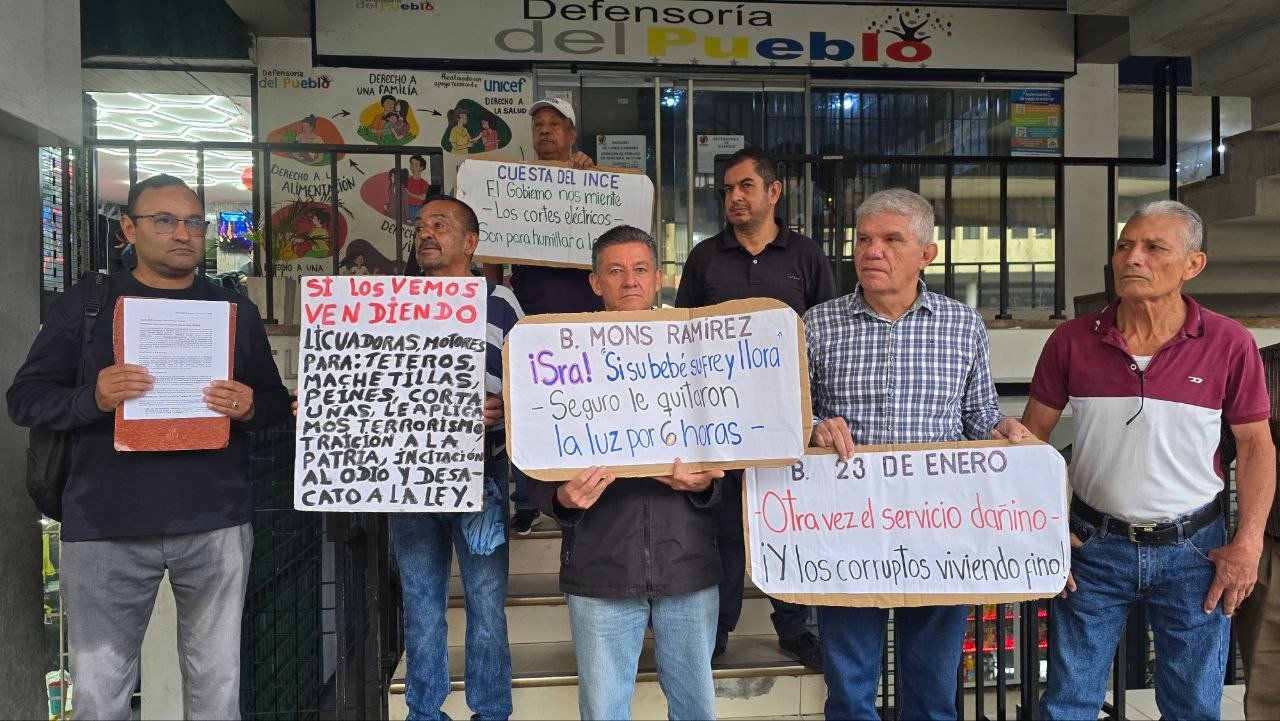 Defensoría
del Pueblo
Defensoría
del Pueblo
DERECHO A
UNA FAMILIA
unicef
DERECHO A
LA SALUD
DERECHO A
LA ALIMENTACIÓN
DERECHO A
CUESTA DEL INCE
El Gobierno nos miente
- Los cortes eléctricos -
Son para humillar a
SI LOS VEMOS
VENDIENDO
LICUADORAS, MOTORES
PARA: TETEROS,
MACHETILLAS,
PEINES, CORTA
UÑAS, LE APLICA
MOS TERRORISMO
TRAICIÓN A LA
PATRIA, INCITACIÓN
AL ODIO Y DESA-
CATO A LA LEY.
B. MONS RAMÍREZ
¡Sra! "Si su bebé sufre y llora
- Seguro le quitaron
la luz por 6 horas -
B. 23 DE ENERO
- Otra vez el servicio dañino -
¡Y los corruptos viviendo fino!